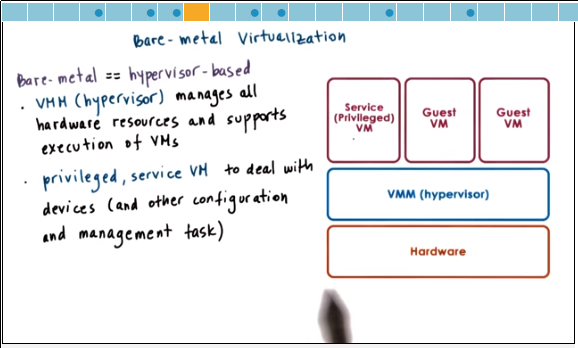 Bare-metal Virtualization
Bare-metal == hypervisor-based
• VMM (hypervisor) manages all
hardware resources and supports
execution of VMs
• privileged, service VM to deal with
devices (and other configuration
and management task)
Service
(Privileged)
VM
Guest
VM
Guest
VM
VMM (hypervisor)
Hardware